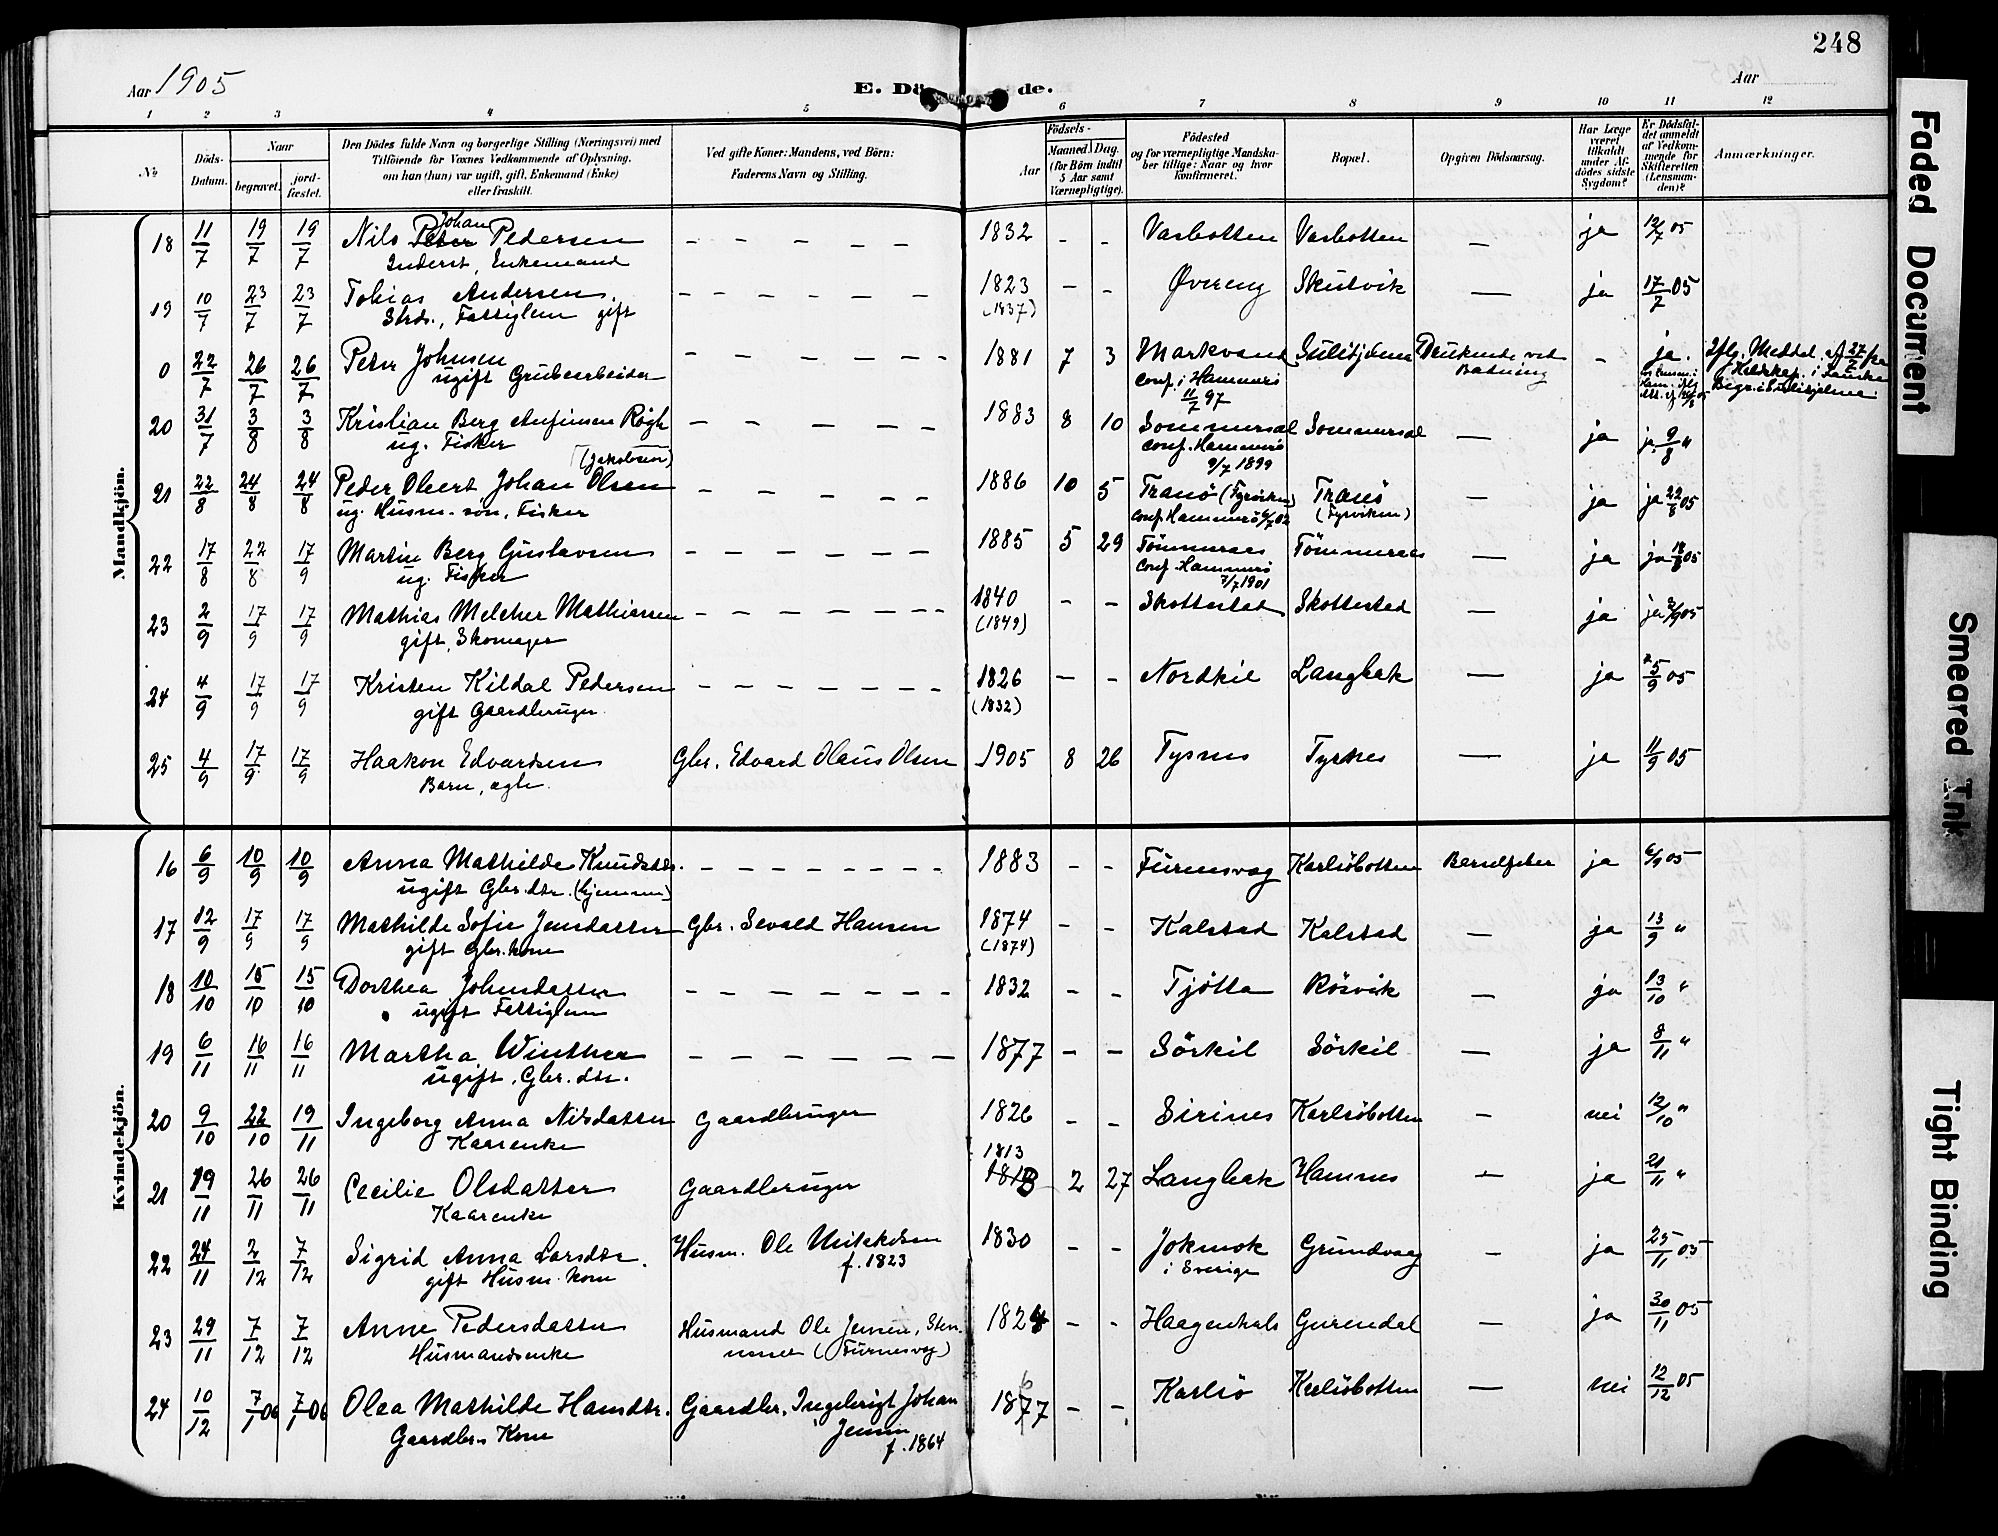 248
Aar 1905
E. Dö de.
Aar
1 2 3 4 5 6 7 8 9 10 11 12
No
Döds-
Datum.
Naar
begravet.
jord-
fæstet.
Den Dödes fulde Navn og borgerlige Stilling (Næringsvei) med
Tilföiende for Voxnes Vedkommende af Oplysning,
om han (hun) var ugift, gift, Enkemand (Enke)
eller fraskilt.
Ved gifte Koner: Mandens, ved Börn:
Faderens Navn og Stilling.
Födsels-
Aar
Maaned. Dag.
(for Börn indtil
5 Aar samt
Værnepligtige).
Födested
og for værnepligtige Mandska-
ber tillige: Naar og hvor
konfirmeret.
Bopæl.
Opgiven Dödsaarsag.
Har Læge
været
tilkaldt
under Af-
dödes sidste
Sygdom?
Er Dödsfal-
det anmeldt
af Vedkom-
mende for
Skifteretten
(Lensman-
den)?
Anmærkninger.
Mandkjön.
18 11/7 19/7 19/7 Nils Peter Johan Pedersen - - - - - 1832 - - Vasbotten Vasbotten — ja 12/7 05
Inderst, Enkemand
19 10/7 23/7 23/7 Tobias Andersen - - - - - - 1823 - - Øvereng Skutvik — ja 17/7 05
Strds., Fattiglem gift (1837)
0 22/7 26/7 26/7 Peter Johnsen - - - - - - 1881 7 3 Markvand Sulitjelma Druknede ved - ja. Iflg. Meddel. af 27/7 fra
ugift Grubearbeider conf. i Hammerö Badning
11/7 97 Begr. i Sulitjelma
20 31/7 3/8 3/8 Kristian Berg Anfinsen Rögh - - - - - 1883 8 10 Sommersel Sommersel — ja ja 9/8 "
ug. Fisker conf. Hammerö
9/7 1899
(Jakobsen)
21 22/8 24/8 24/8 Peder Olvert Johan Olsen - - - - - 1886 10 5 Tranö Tranö — ja ja 22/8 05
ug. Husm. sön, Fisker conf. Hammerö
22 17/8 22/8 17/9 Martin Berg Gustavsen - - - - - - 1885 5 29 Tömmernes Tömmernes — ja ja 05
ug. Fisker conf. Hammerö
7/7 1901
23 2/9 17/9 17/9 Mathias Melcher Mathiassen - - - - - - 1840 - - Skottestad Skottestad — ja ja 05
gift, Skomager (1849)
24 4/9 17/9 17/9 Kristen Kildal Pedersen - - - - - - 1826 - - Nordkil Langbak — ja 5/9 05
gift Gaardbruger (1832)
25 4/9 17/9 17/9 Haakon Edvardsen Gbr. Edvard Olaus Olsen 1905 8 26 Tysnes Tysnes — ja 11/9 05
Barn, ægte.
Kvindekjön.
16 6/9 10/9 10/9 Anna Mathilde Knudsdtr. - - - - - - - 1883 - - Furensvag Karlsöbotten Barselfeber ja 6/9 05
ugift Gbr. dtr. (hjemme)
17 12/9 17/9 17/9 Mathilde Sofie Jensdatter Gbr. Sevald Hansen 1874 - - Kalstad Kalstad — ja 13/9 "
gift Gbr. kone (1874)
18 10/10 15/10 15/10 Dorthea Johnsdatter - - - - - - 1832 - - Tjötta Rösvik — ja 13/10 "
ugift Fattiglem
19 6/11 16/11 16/11 Martha Winther - - - - - - 1877 - - Sörkil Sörkil — ja 8/11 "
ugift, Gbr. dtr.
20 9/10 22/10 19/11 Ingeborg Anna Nilsdatter Gaardbruger 1826 - - Sirines Karlsöbotten - nei 12/10 "
Kaarenke
1813
21 19/11 26/11 26/11 Cecilie Olsdatter Gaardbruger 1813 2 27 Langbak Hamnes - ja 21/11 "
Kaarenke
22 24/11 2/12 7/12 Sigrid Anna Larsdtr. Husm. Ole Mikkelsen 1830 - - Jokmok Grundvaag - ja 25/11 05
gift Husm. kone f. 1823 i Sverige
23 29/11 7/12 7/12 Anne Pedersdatter Husmand Ole Jensen, 1824 - - Haagenhals Gurendal — ja 30/11 05
Husmandsenke (Furnesvag)
24 10/12 7/1 06 7/1 06 Olea Mathilde Hansdtr. Gaardbr. Ingebrigt Johan 1877 - - Karlsö Karlsöbotten — nei 12/12 05
Gaardbr. Kone Jensen
f. 1864
Faded Document
Smeared Ink
Tight Binding